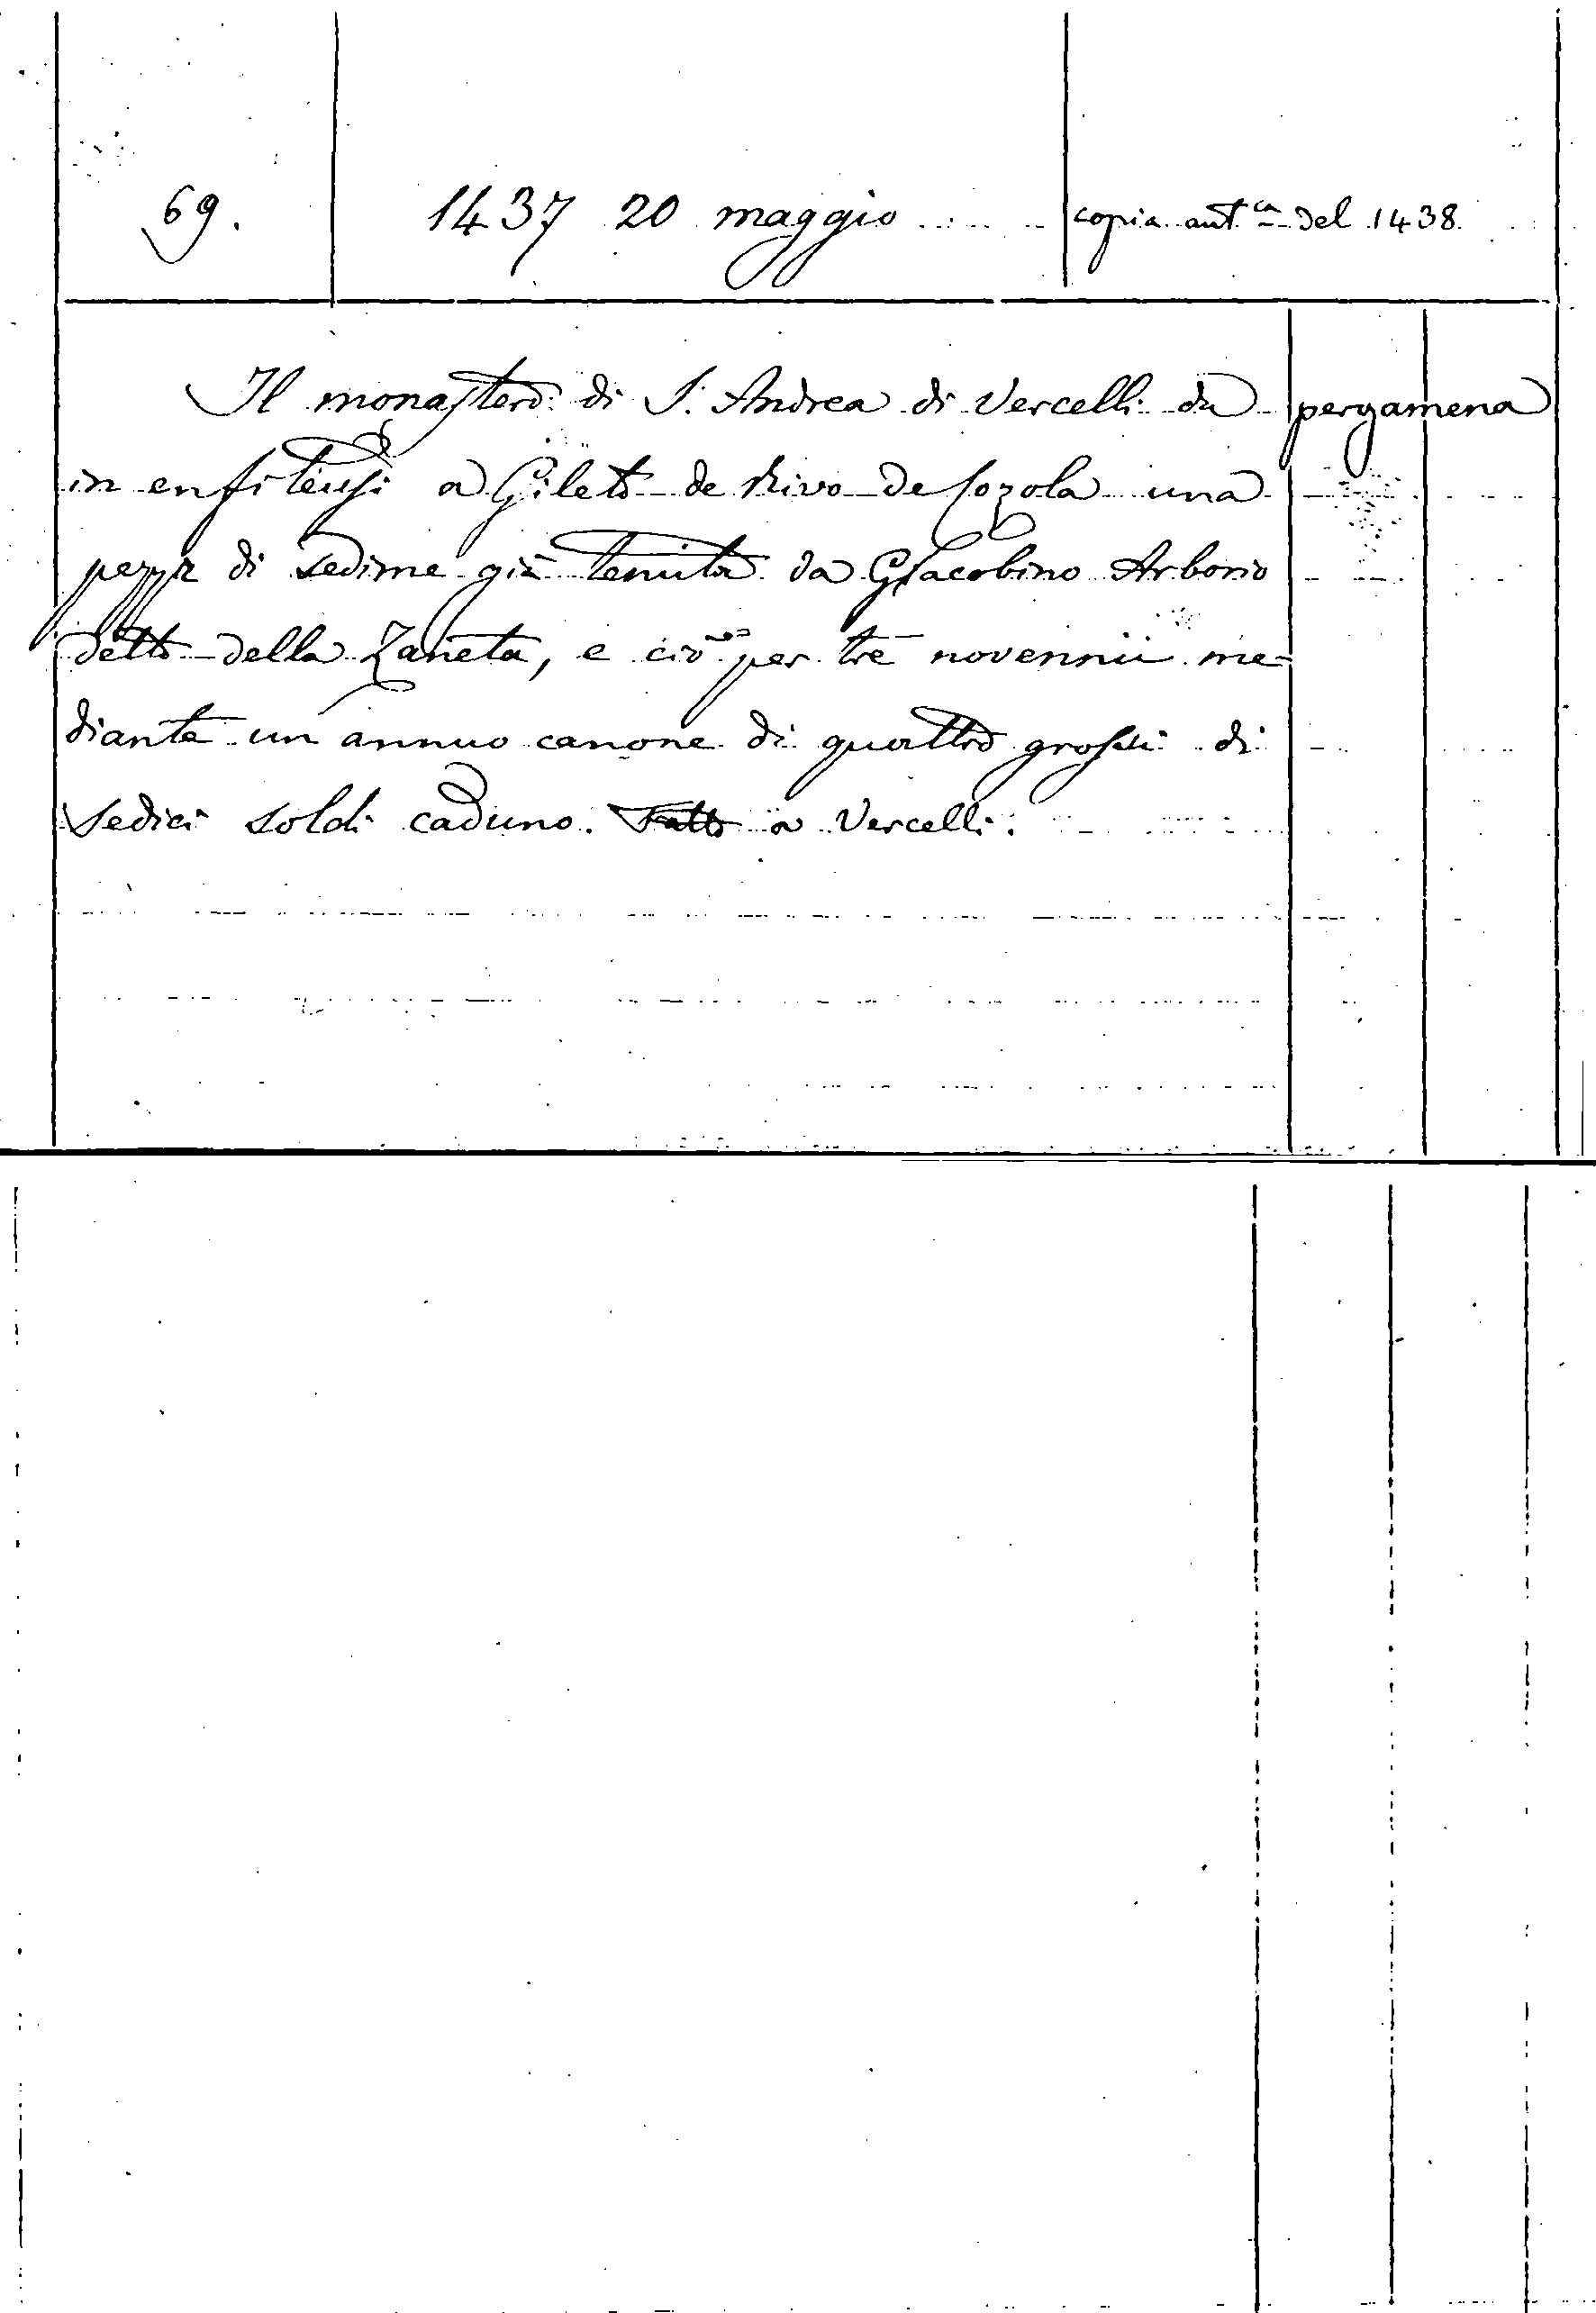 69. 1437 20 maggio copia aut.ca del 1438.
Il monastero di S. Andrea di Vercelli dà pergamena
in enfiteusi a Gileto de Rivo de Cozola una
pezza di sedime già tenuta da Giacobino Arborio
detto della Zaneta, e ciò per tre novennii me-
diante un annuo canone di quattro grossi di
sedici soldi caduno. Fatto a Vercelli.